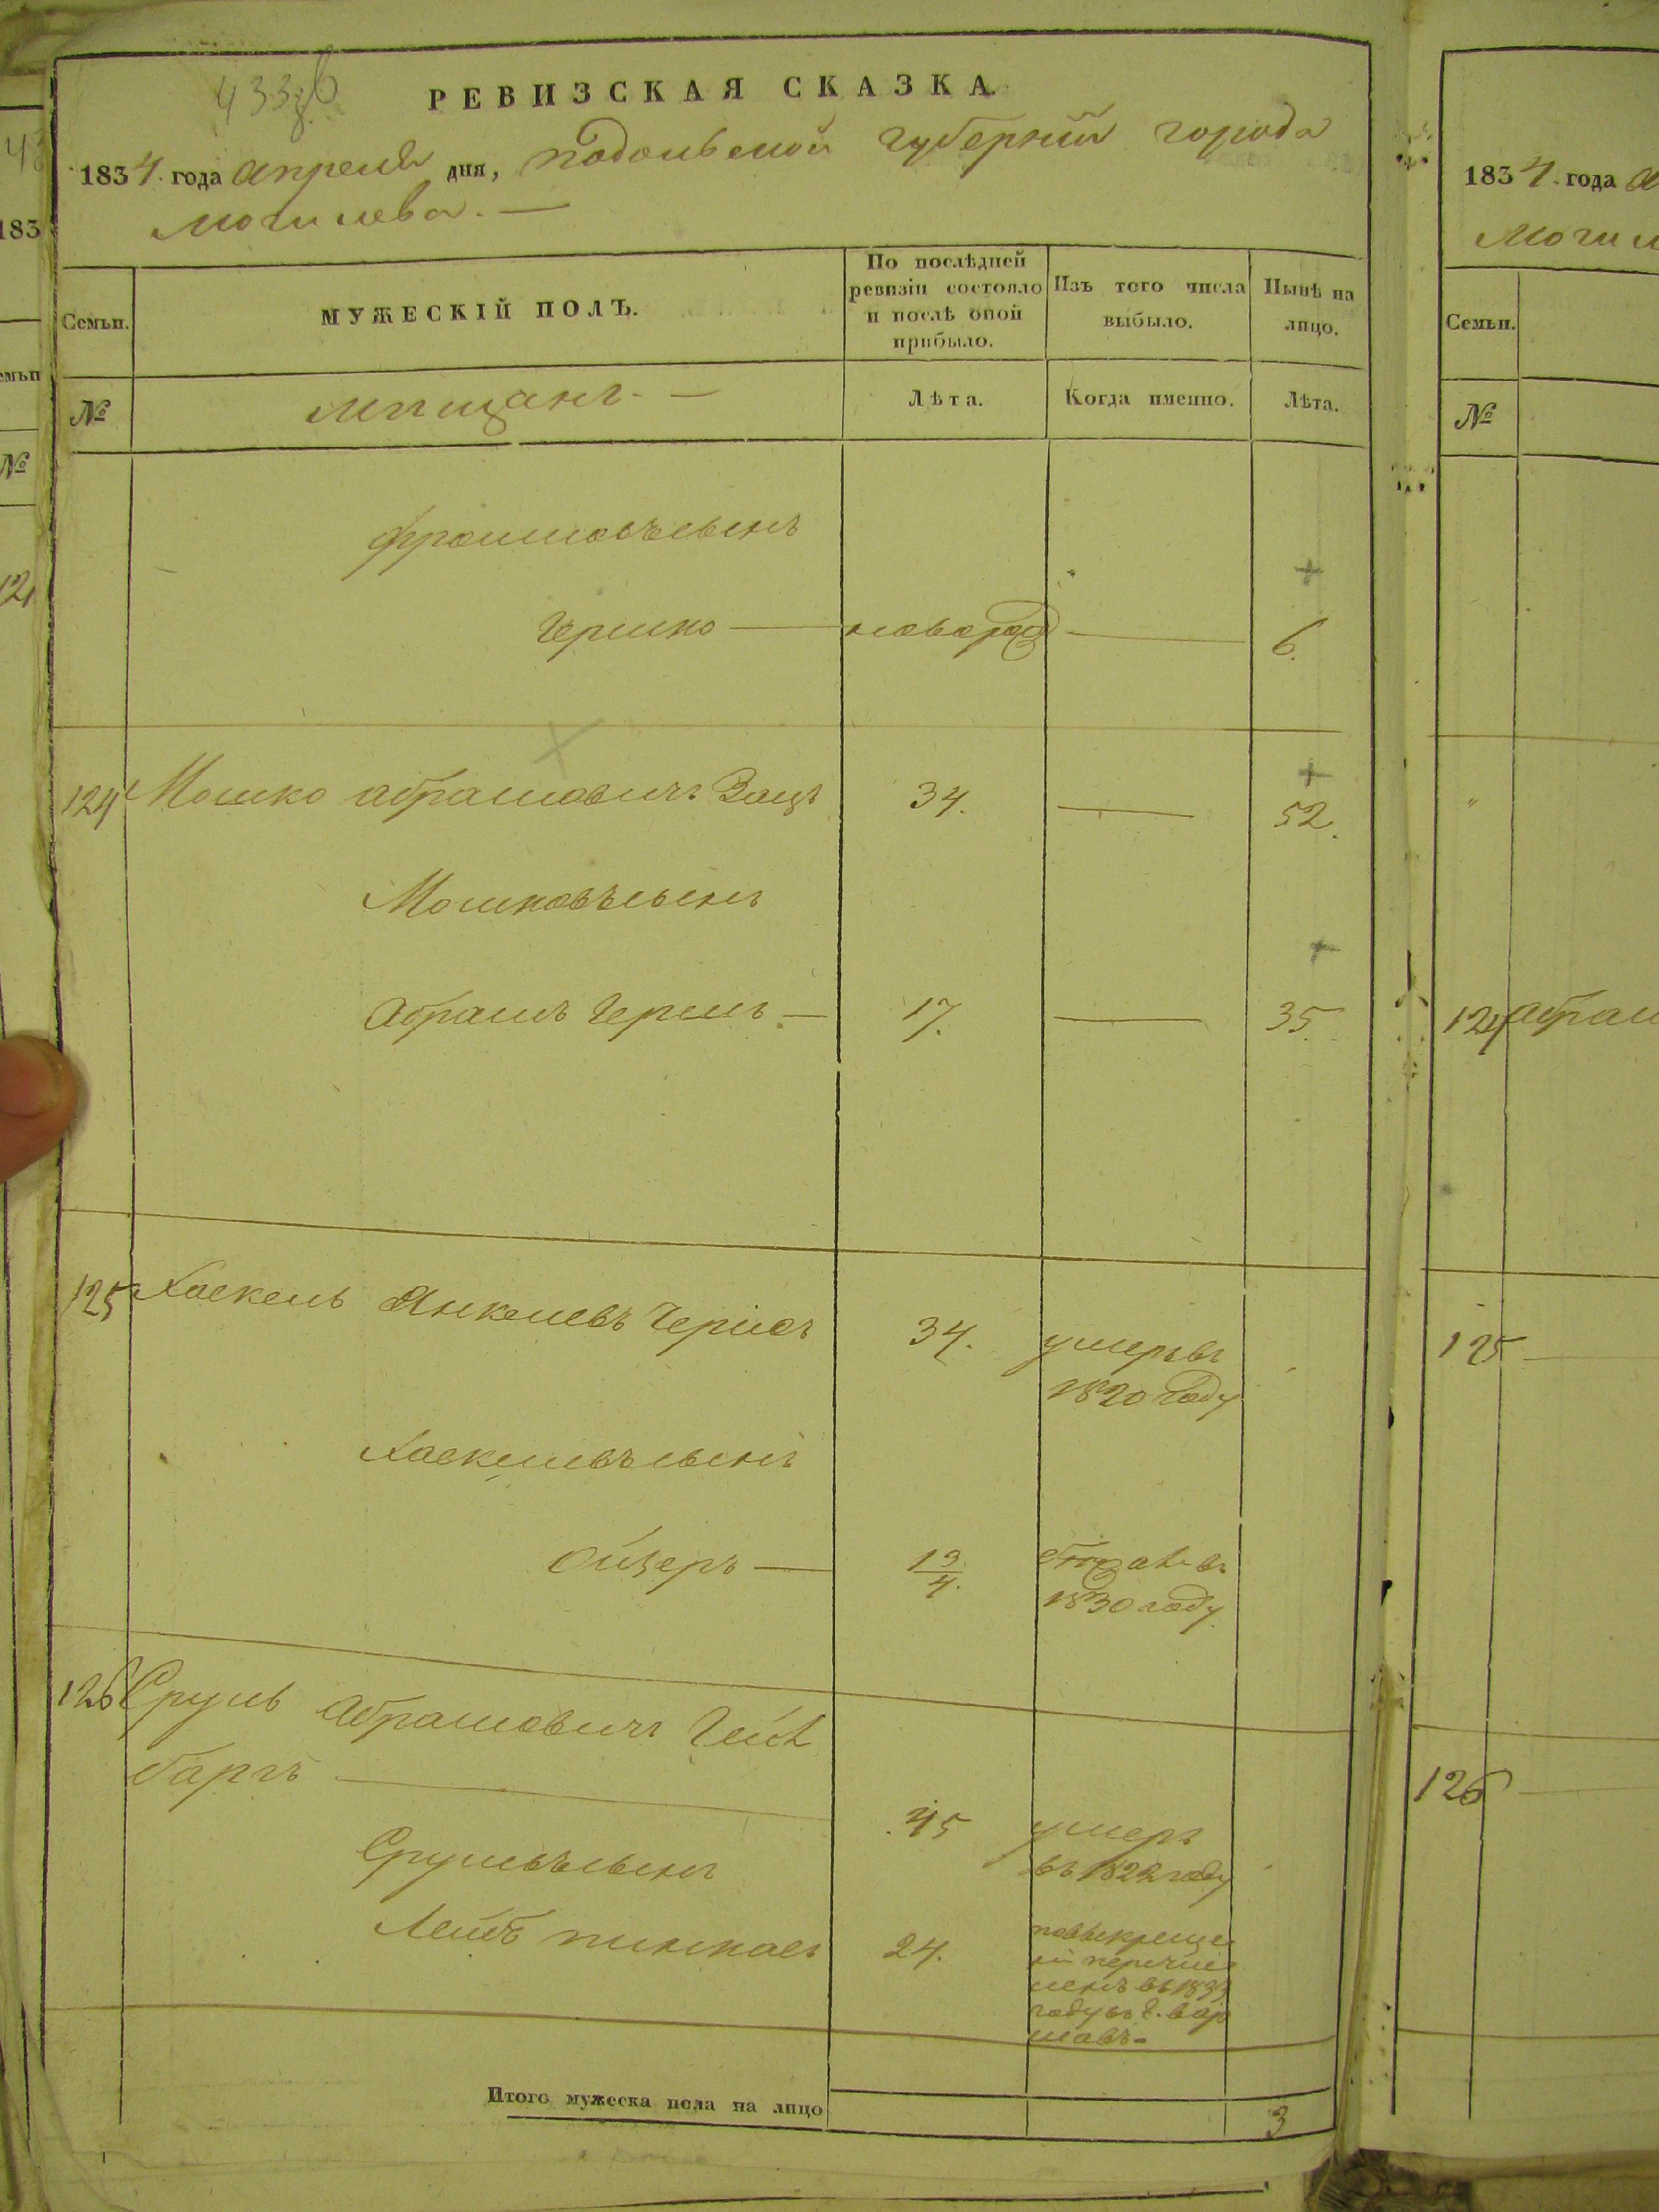 РЕВИЗСКАЯ СКАЗКА.
1834 года апреля дня, подольской губернии города
могилева. —
Семьи.
МУЖЕСКІЙ ПОЛЪ.
По послѣдней ревизіи состояло и послѣ оной прибыло.
Изъ того числа выбыло.
Нынѣ на лицо.
№
мѣщанъ. —
Лѣта.
Когда именно.
Лѣта.
сынъ
Гершко — новорож — 6.
124 Мошко абрамовичъ Зацъ 34. — 52.
Мошковъ сынъ
Абрамъ Гершъ — 17. — 35
125 Хаскель Янкелевъ 34. умеръ въ
1820 году
Хаскелевъ сынъ
Ойзеръ — 1 3/4. въ
1830 году.
126 Сруль Абрамовичъ
баргъ — 45 умеръ
въ 1822 году
Срулевъ сынъ
Лейбъ пинкасъ 24.
перечис
ленъ въ
году въ г. вар
шавъ.
Итого мужеска пола на лицо 3
1834 года
Семьи.
№
124 абрам
125
126